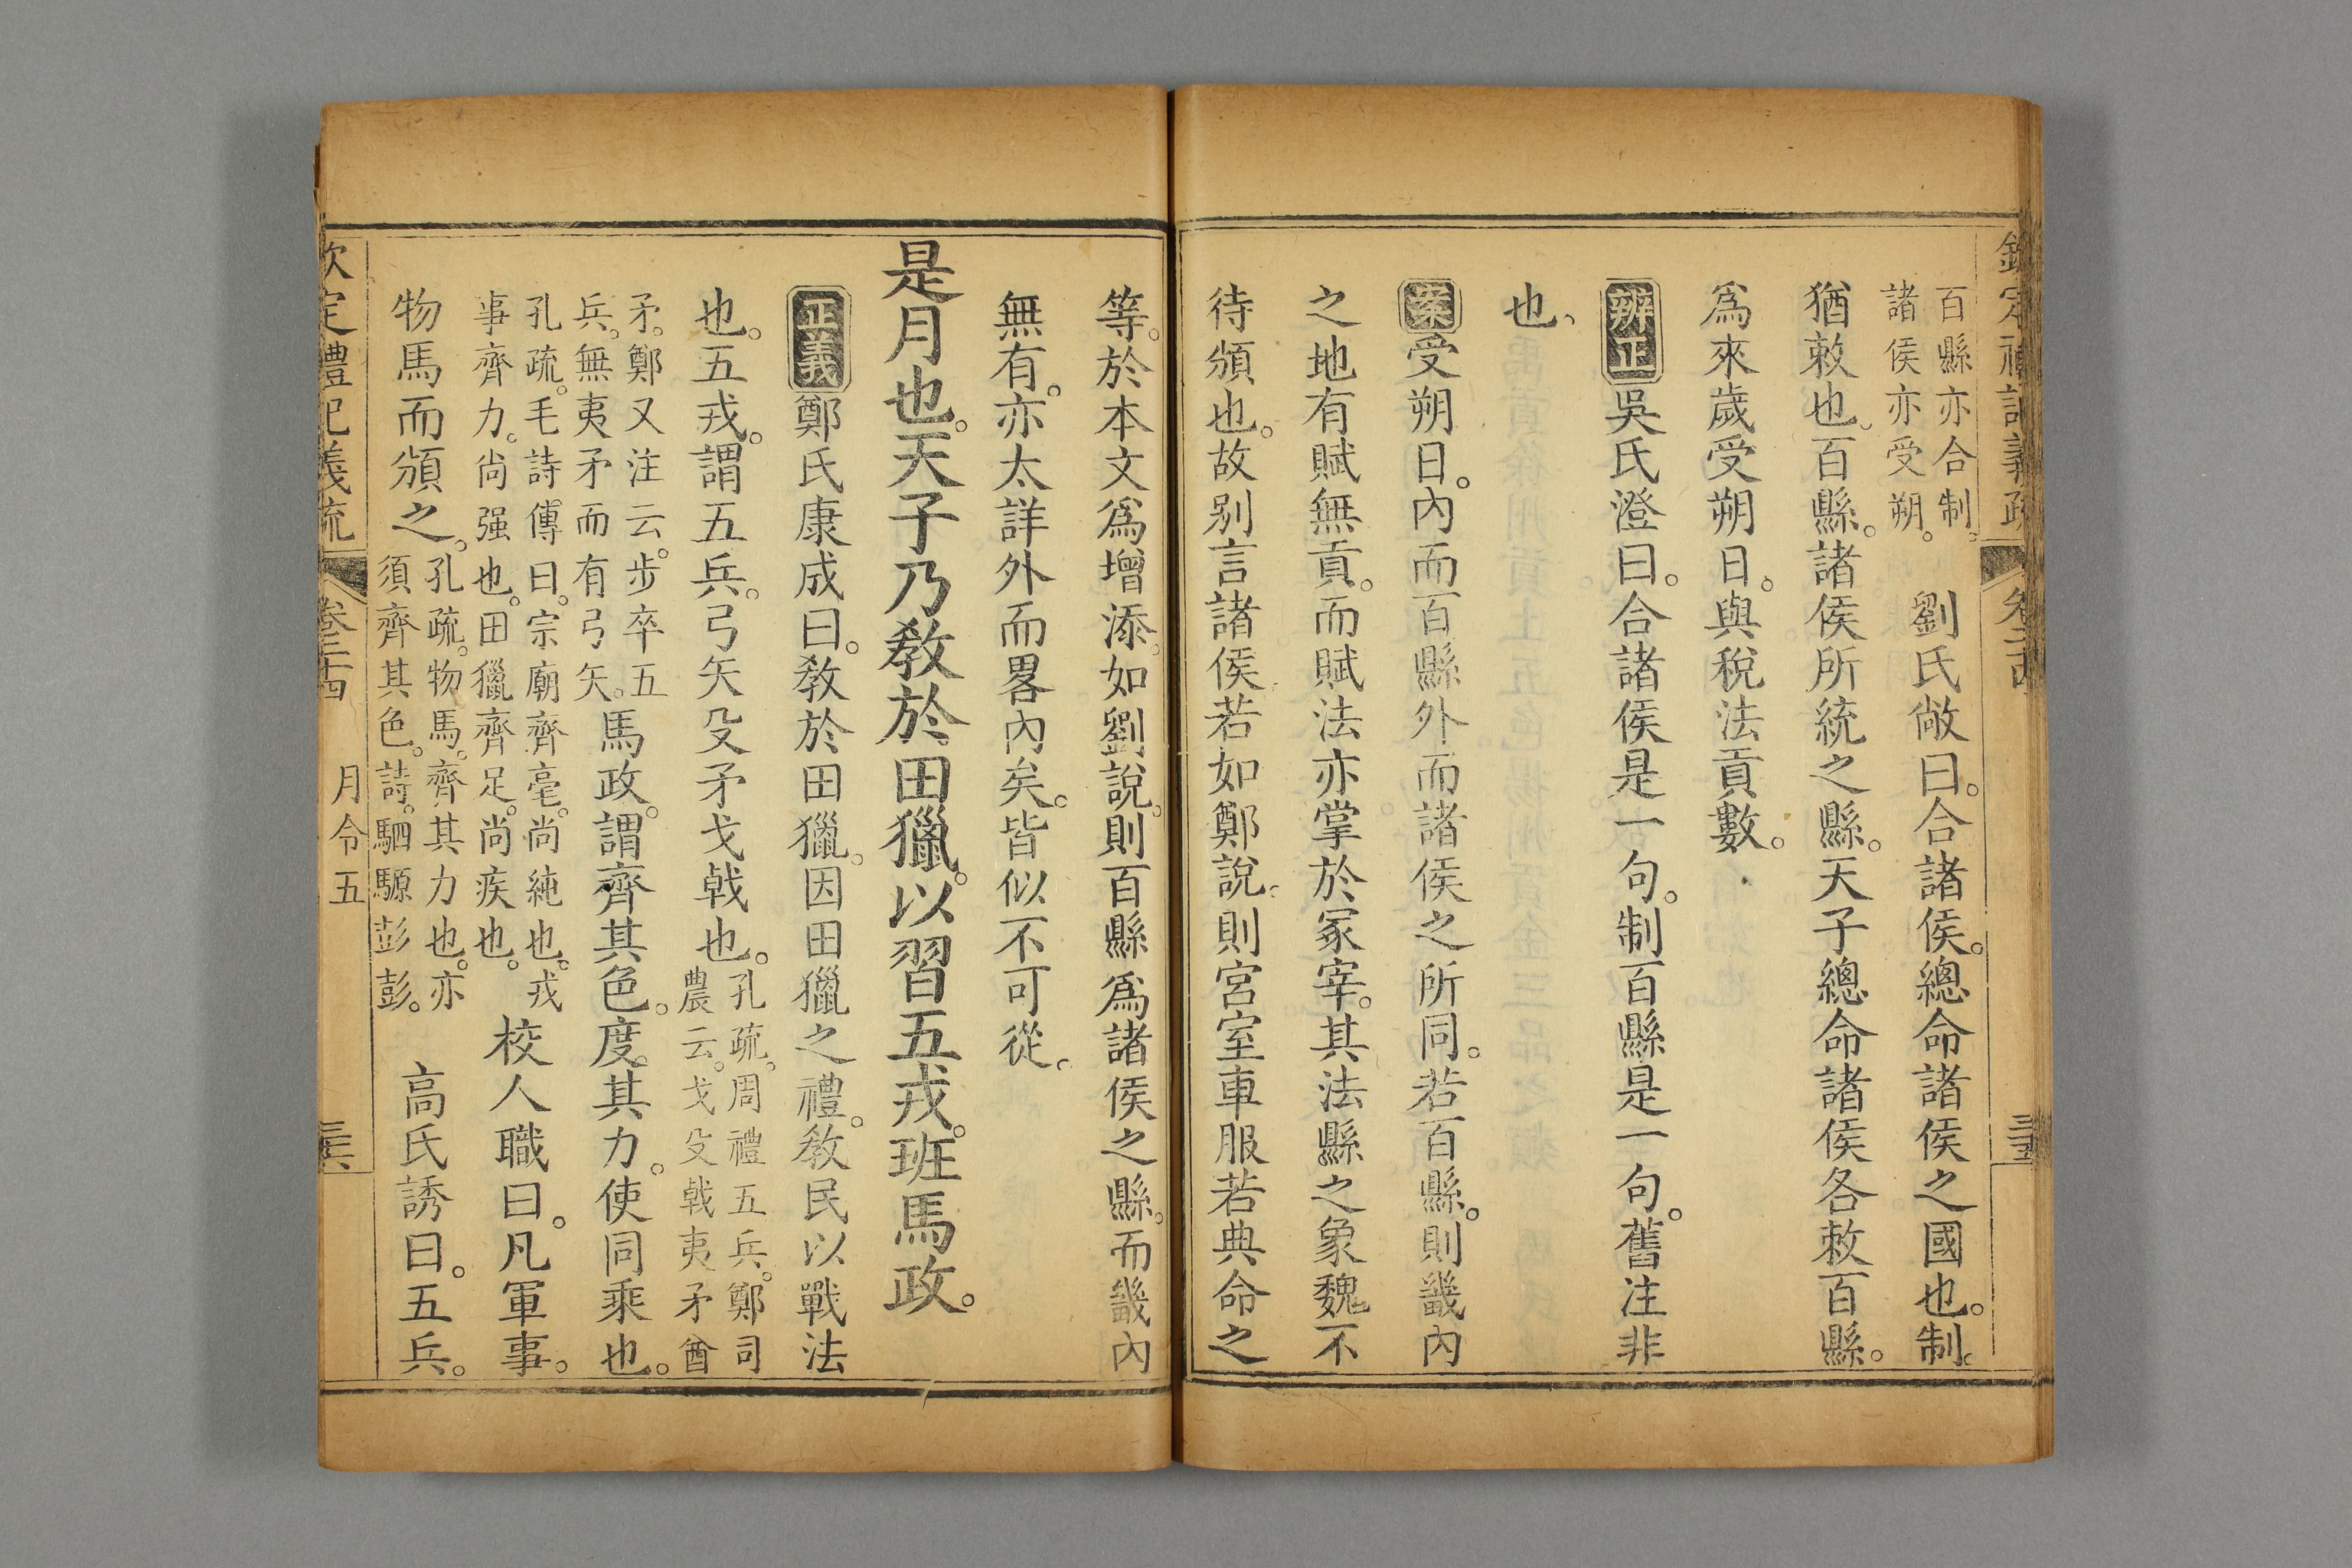 欽定禮記義疏 卷二十四 三五
百縣亦合制。
諸侯亦受朔。
劉氏敞曰。合諸侯。總命諸侯之國也。制。
猶敕也。百縣。諸侯所統之縣。天子總命諸侯各敕百縣。
爲來歲受朔日。與稅法貢數。
辨正吳氏澄曰。合諸侯是一句。制百縣是一句。舊注非
也。
案受朔日。內而百縣外而諸侯之所同。若百縣。則畿內
之地有賦無貢。而賦法亦掌於冢宰。其法縣之象魏不
待頒也。故別言諸侯若如鄭說。則宮室車服若典命之
等。於本文爲增添。如劉說。則百縣爲諸侯之縣。而畿內
無有。亦太詳外而畧內矣。皆似不可從。
是月也。天子乃敎於田獵。以習五戎。班馬政。
正義鄭氏康成曰。敎於田獵。因田獵之禮。敎民以戰法
也。五戎。謂五兵。弓矢殳矛戈戟也。
孔疏。周禮五兵。鄭司
農云。戈殳戟夷矛酋
矛。鄭又注云。步卒五
兵。無夷矛而有弓矢。
馬政。謂齊其色。度其力。使同乘也。
孔疏。毛詩傳曰。宗廟齊毫。尚純也。戎
事齊力。尚强也。田獵齊足。尚疾也。
校人職曰。凡軍事。
物馬而頒之。
孔疏。物馬。齊其力也。亦
須齊其色。詩。駟騵彭彭。
高氏誘曰。五兵。
欽定禮記義疏 卷二十四 月令五 三六